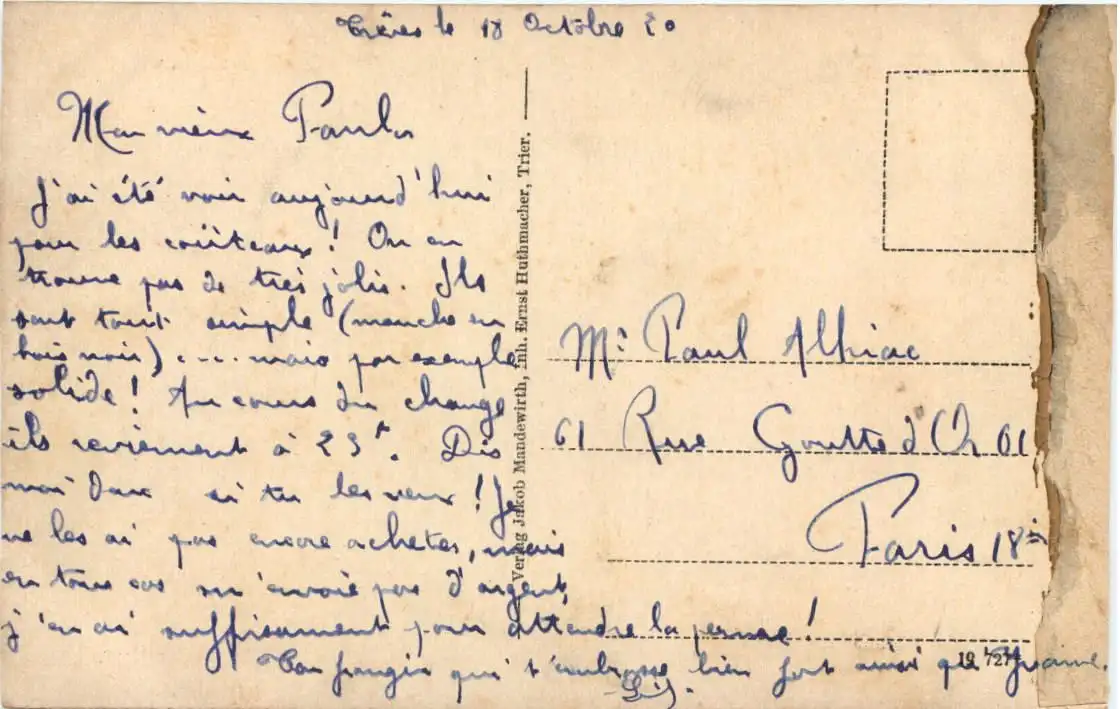 Trèves le 18 Octobre 20
Mon vieux Paulo
J'ai été voir aujourd'hui
pour les coûteaux! On en
trouve pas de très jolis. Ils
sont tout simple (manche en
bois noir) .... mais par exemple
solide! Au cours du change
ils reviennent à 23f. Dis
moi donc si tu les veux! Je
ne les ai pas encore achetés, mais
en tous cas m'envoie pas d'argent,
j'en ai suffisament pour attendre la permee!
Ton frangin qui t'embrasse bien fort ainsi que
Verlag Jakob Mandewirth, Inh. Ernst Huthmacher, Trier.
Mr Paul Alhiac
61 Rue Goutte d'Or 61
Paris 18